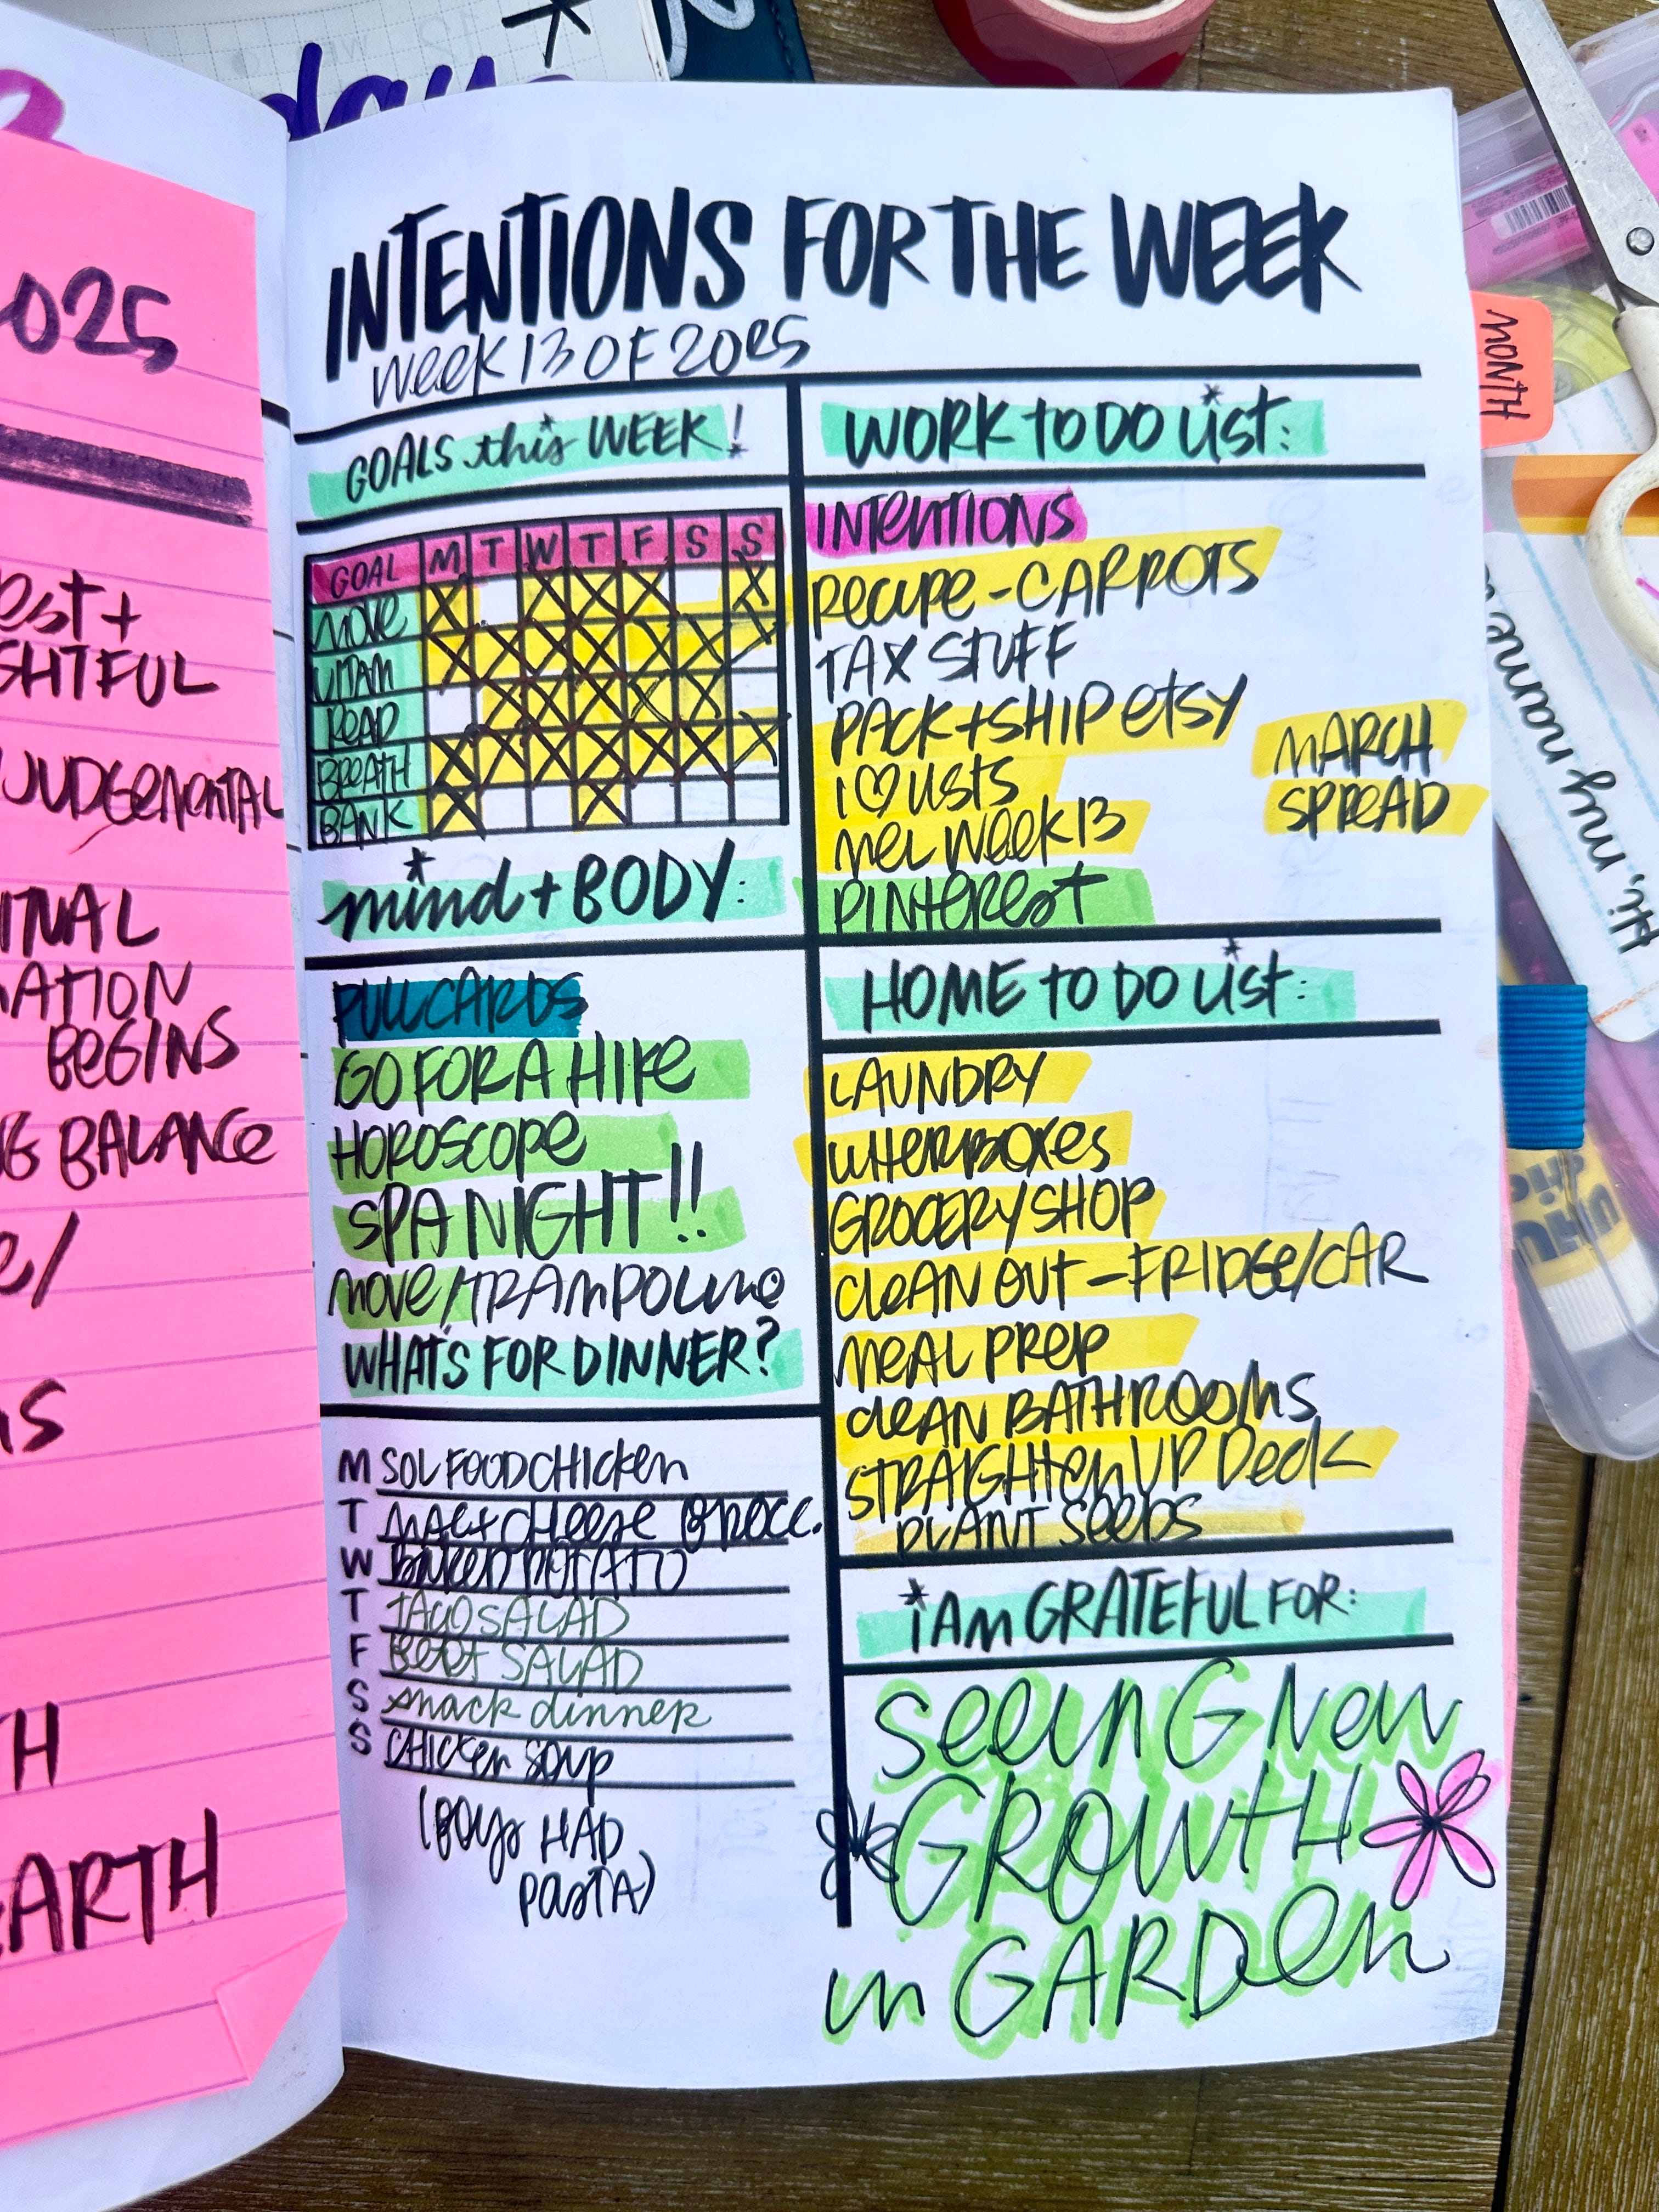 day
2025
est +
GHTFUL
JUDGEMENTAL
BEGINS
BALANCE
EARTH
INTENTIONS FOR THE WEEK
WEEK 13 OF 2025
GOALS this WEEK!
GOAL M T W T F S S
MOVE
VITAM
READ
BREATH
BANK
mind + BODY:
PULL CARDS
GO FOR A HIKE
HOROSCOPE
SPA NIGHT!!
MOVE/TRAMPOLINE
WHAT'S FOR DINNER?
M SOL FOOD CHICKEN
T MAC + CHEESE BROCC.
W BAKED POTATO
T TACO SALAD
F BEET SALAD
S snack dinner
S CHICKEN SOUP
(BOYS HAD
PASTA)
WORK TO DO LIST:
INTENTIONS
RECIPE - CARROTS
TAX STUFF
PACK + SHIP ETSY
I ♡ LISTS
MEL WEEK 13
PINTEREST
MARCH
SPREAD
HOME TO DO LIST:
LAUNDRY
LITTER BOXES
GROCERY SHOP
CLEAN OUT - FRIDGE/CAR
MEAL PREP
CLEAN BATHROOMS
STRAIGHTEN UP DECK
PLANT SEEDS
i AM GRATEFUL FOR:
SEEING NEW
GROWTH
in GARDEN
MONTH
Hi, my name
UHU
stic